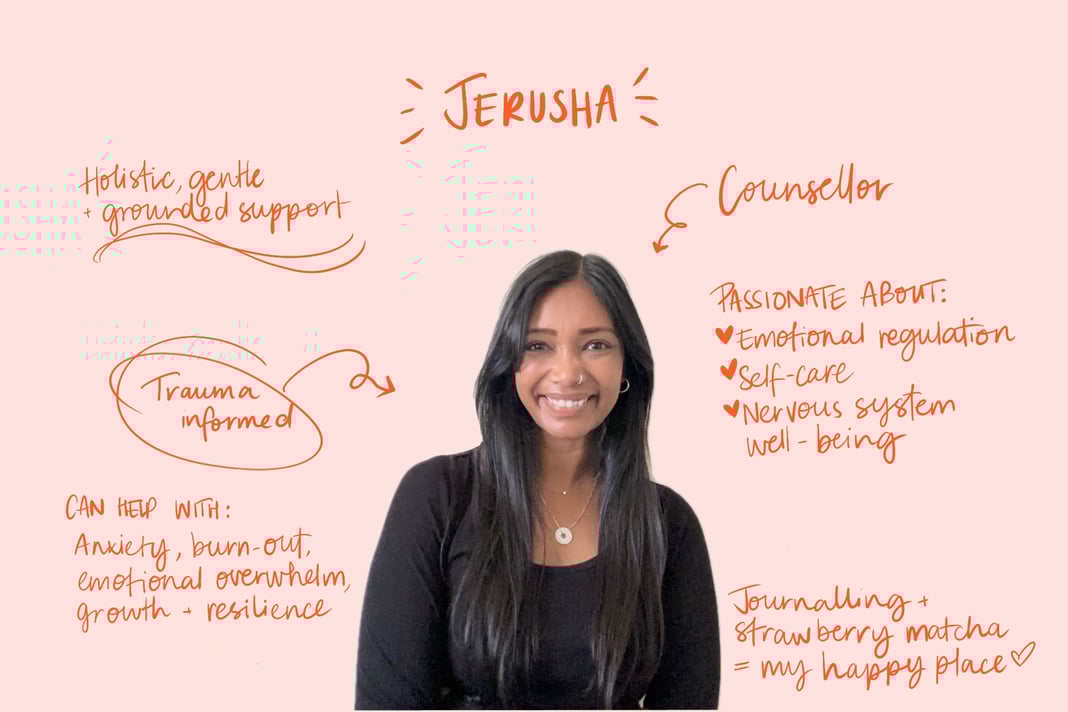 JERUSHA
Holistic, gentle
+ grounded support
Counsellor
Trauma
informed
PASSIONATE ABOUT:
Emotional regulation
Self-care
Nervous system
well-being
CAN HELP WITH:
Anxiety, burn-out,
emotional overwhelm,
growth + resilience
Journalling +
strawberry matcha
= my happy place